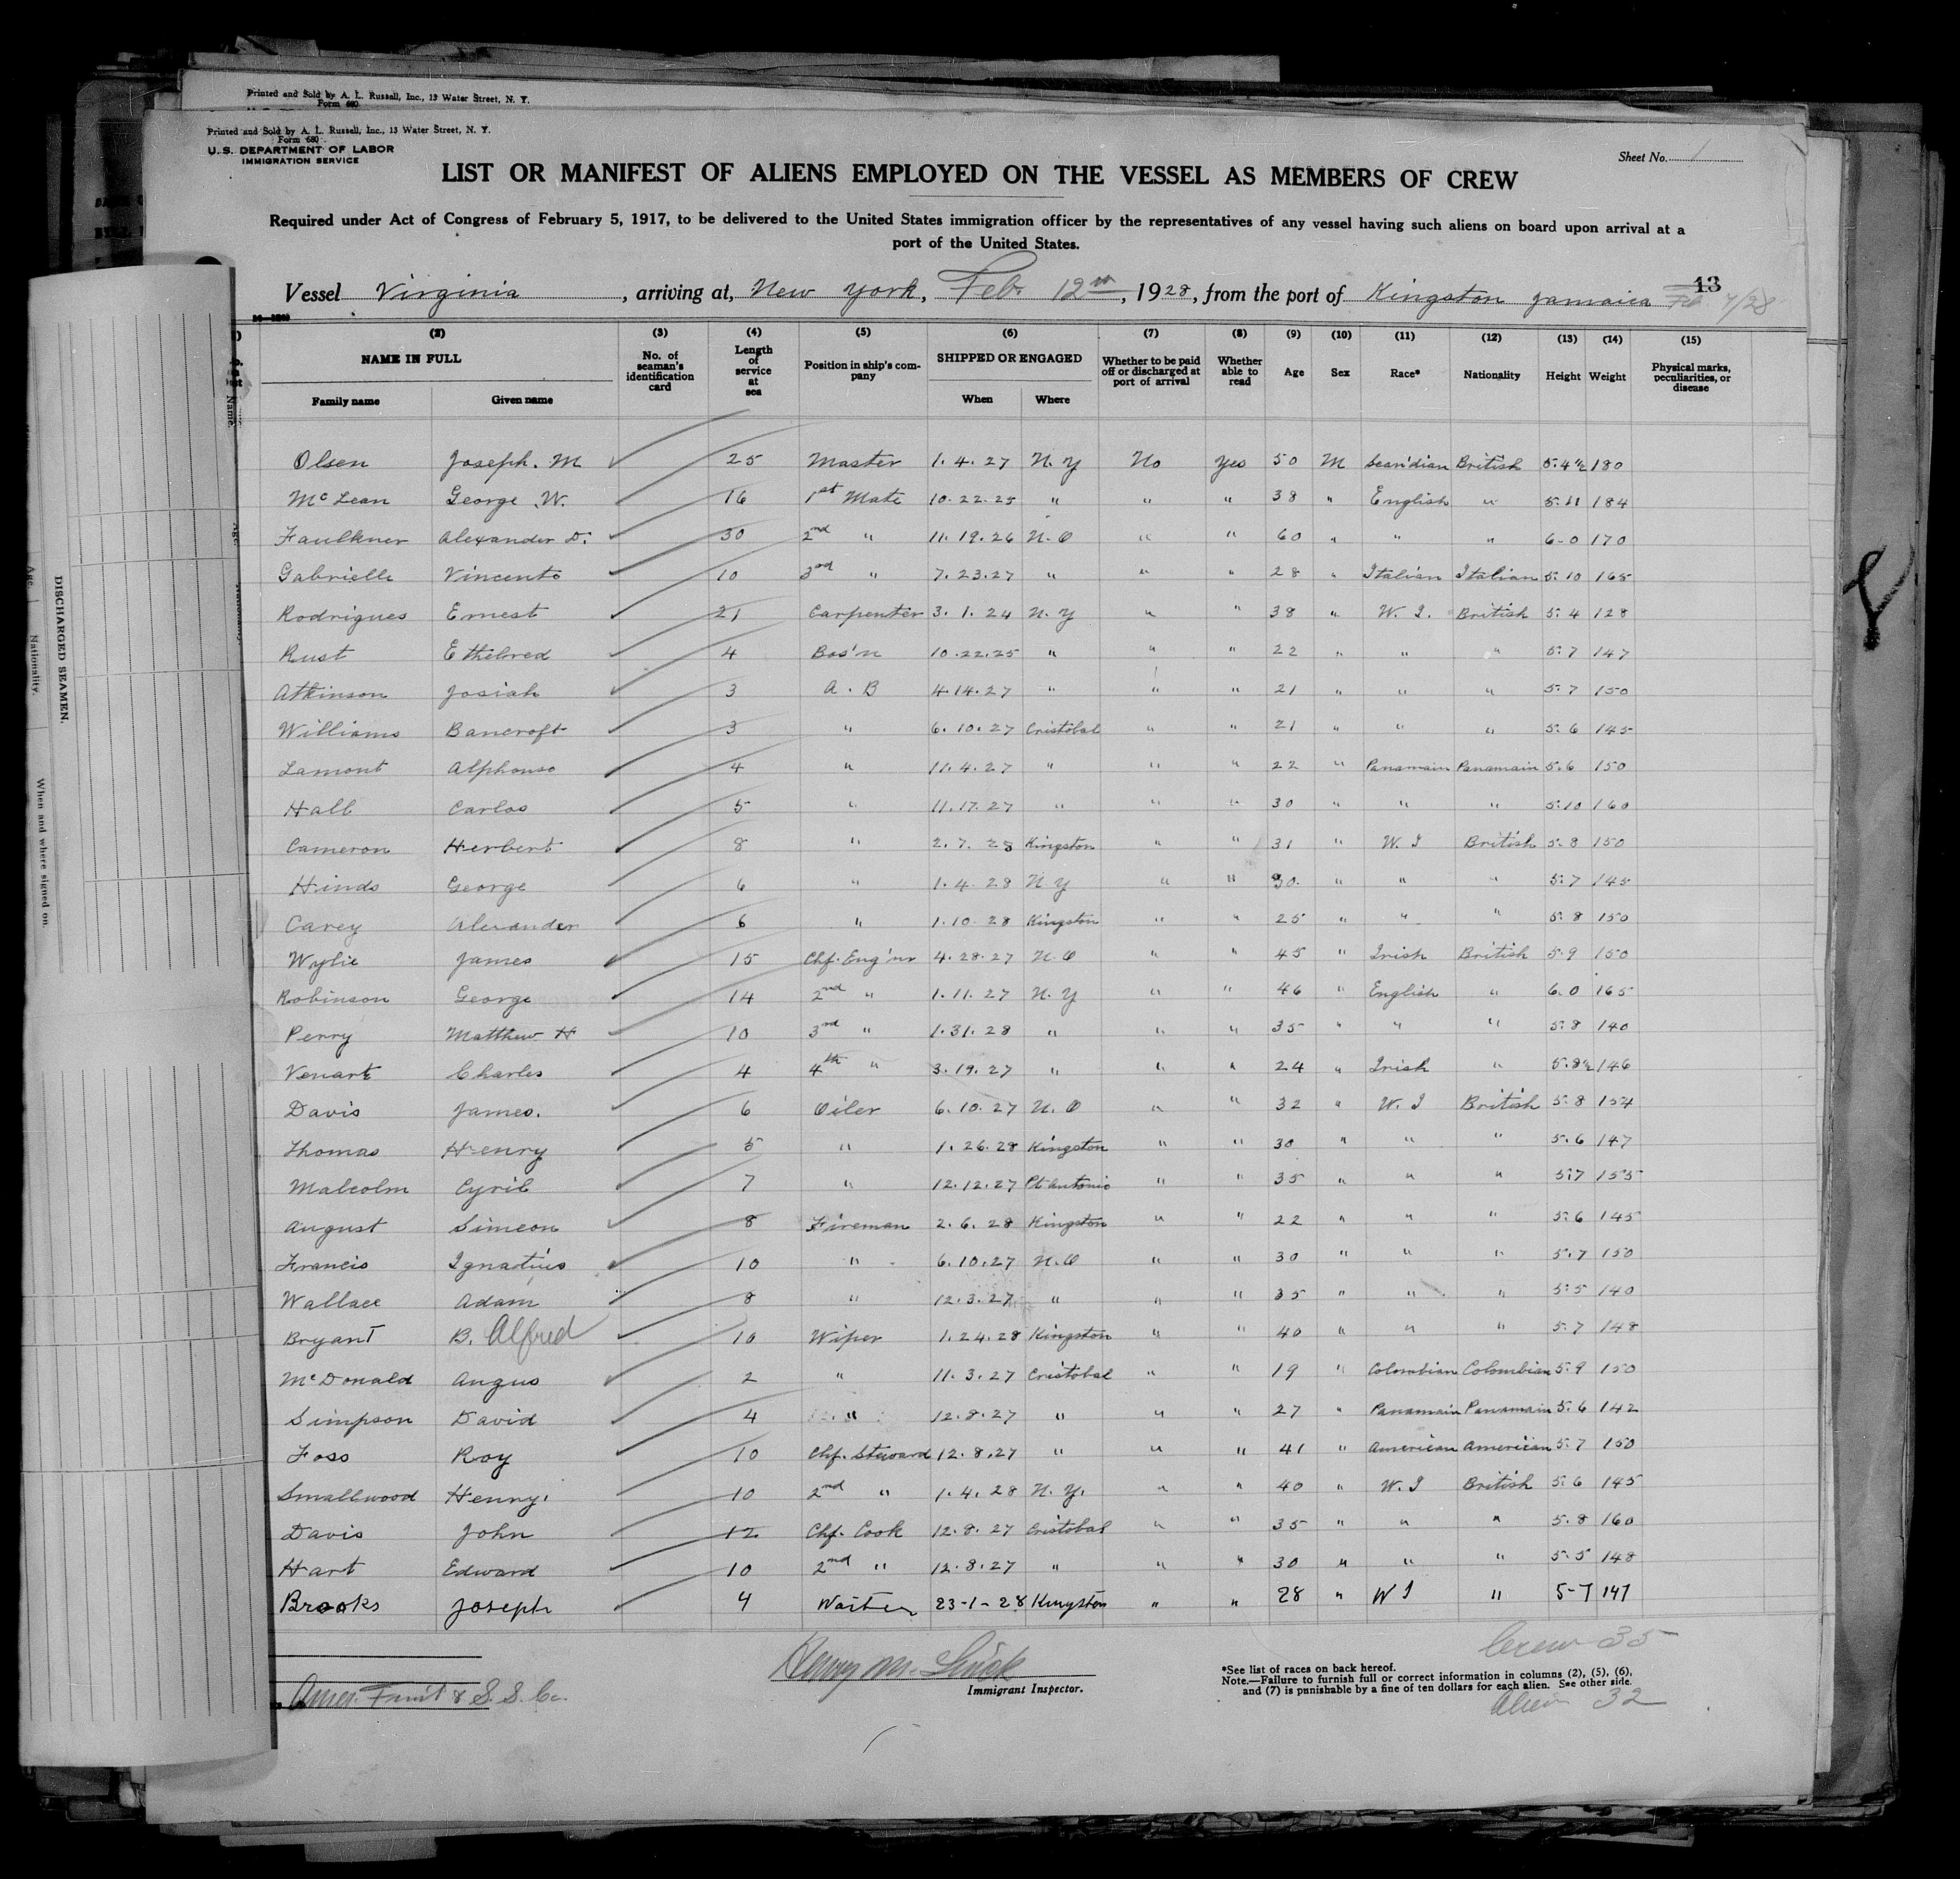 Printed and Sold by A. L. Russell, Inc., 13 Water Street, N. Y.
Form 680
Printed and Sold by A. L. Russell, Inc., 13 Water Street, N. Y.
Form 680
U. S. DEPARTMENT OF LABOR
IMMIGRATION SERVICE
Sheet No. 1
LIST OR MANIFEST OF ALIENS EMPLOYED ON THE VESSEL AS MEMBERS OF CREW
Required under Act of Congress of February 5, 1917, to be delivered to the United States immigration officer by the representatives of any vessel having such aliens on board upon arrival at a
port of the United States.
13
Vessel Virginia, arriving at, New York, Feb. 12th, 1928, from the port of Kingston Jamaica Feb 7/28
(2) (3) (4) (5) (6) (7) (8) (9) (10) (11) (12) (13) (14) (15)
NAME IN FULL Family name Given name No. of seaman's identification card Length of service at sea Position in ship's company SHIPPED OR ENGAGED When Where Whether to be paid off or discharged at port of arrival Whether able to read Age Sex Race* Nationality Height Weight Physical marks, peculiarities, or disease
Olsen Joseph. M 25 Master 1.4.27 N.Y No Yes 50 M Scan'dian British 5.4½ 180
McLean George W. 16 1st Mate 10.22.25 " " " 38 " English " 5.11 184
Faulkner Alexander D. 30 2nd " 11.19.26 N.O " " 60 " " " 6-0 170
Gabrielle Vincento 10 3rd " 7.23.27 " " " 28 " Italian Italian 5.10 165
Rodrigues Ernest 21 Carpenter 3.1.24 N.Y " " 38 " W.I. British 5.4 128
Rust Ethelred 4 Bos'n 10.22.25 " " " 22 " " " 5.7 147
Atkinson Josiah 3 A.B 4.14.27 " " " 21 " " " 5.7 150
Williams Bancroft 3 " 6.10.27 Cristobal " " 21 " " " 5.6 145
Lamont Alphonso 4 " 11.4.27 " " " 22 " Panamain Panamain 5.6 150
Hall Carlos 5 " 11.17.27 " " " 30 " " " 5.10 160
Cameron Herbert 8 " 2.7.28 Kingston " " 31 " W.I British 5.8 150
Hinds George 6 " 1.4.28 N Y " " 30. " " " 5.7 145
Carey Alexander 6 " 1.10.28 Kingston " " 25 " " " 5.8 150
Wylie James 15 Chf. Eng'nr 4.28.27 N.O " " 45 " Irish British 5.9 150
Robinson George 14 2nd " 1.11.27 N.Y " " 46 " English " 6.0 165
Perry Matthew H 10 3rd " 1.31.28 " " " 35 " " " 5.8 140
Venart Charles 4 4th " 3.19.27 " " " 24 " Irish " 5.8½ 146
Davis James. 6 Oiler 6.10.27 N.O " " 32 " W.I British 5.8 154
Thomas Henry 5 " 1.26.28 Kingston " " 30 " " " 5.6 147
Malcolm Cyril 7 " 12.12.27 Pt Antonio " " 35 " " " 5.7 155
August Simeon 8 Fireman 2.6.28 Kingston " " 22 " " " 5.6 145
Francis Ignatius 10 " 6.10.27 N.O " " 30 " " " 5.7 150
Wallace Adam 8 " 12.3.27 " " " 35 " " " 5.5 140
Bryant B. Alfred 10 Wiper 1.24.28 Kingston " " 40 " " " 5.7 148
McDonald Angus 2 " 11.3.27 Cristobal " " 19 " Colombian Colombian 5.9 150
Simpson David 4 " 12.8.27 " " " 27 " Panamain Panamain 5.6 142
Foss Roy 10 Chf. Steward 12.8.27 " " " 41 " American American 5.7 150
Smallwood Henry. 10 2nd " 1.4.28 N.Y. " " 40 " W.I British 5.6 145
Davis John 12 Chf. Cook 12.8.27 Cristobal " " 35 " " " 5.8 160
Hart Edward 10 2nd " 12.8.27 " " " 30 " " " 5.5 148
Brooks Joseph 4 Waiter 23-1-28 Kingston " " 28 " W I " 5-7 147
Crew 35
Immigrant Inspector.
*See list of races on back hereof.
Note.—Failure to furnish full or correct information in columns (2), (5), (6),
and (7) is punishable by a fine of ten dollars for each alien. See other side.
Alien 32
Amer. Fruit & S.S. Co.
DISCHARGED SEAMEN.
Age.
Nationality.
When and where signed on.
Name.